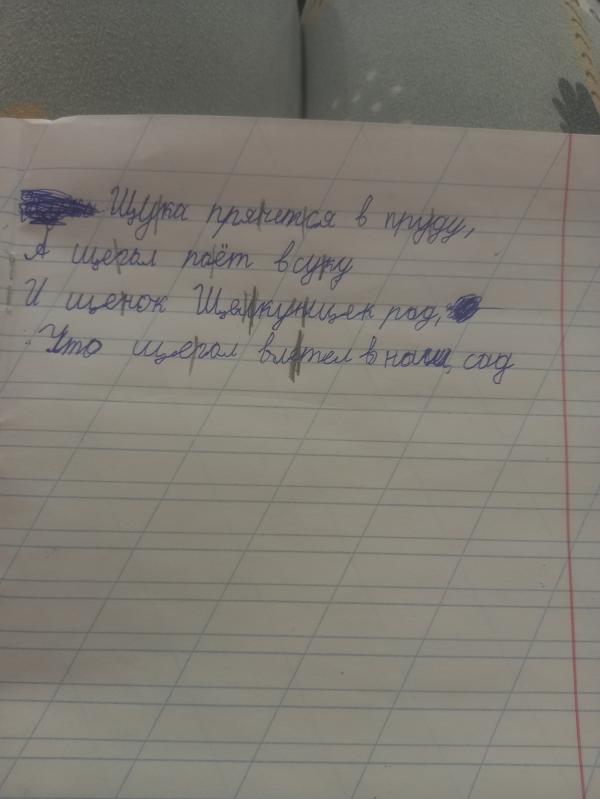 Щука прячется в пруду,
А щегол поёт в суку
И щенок Щелкунщек рад,
Что щегол влетел в наш, сад